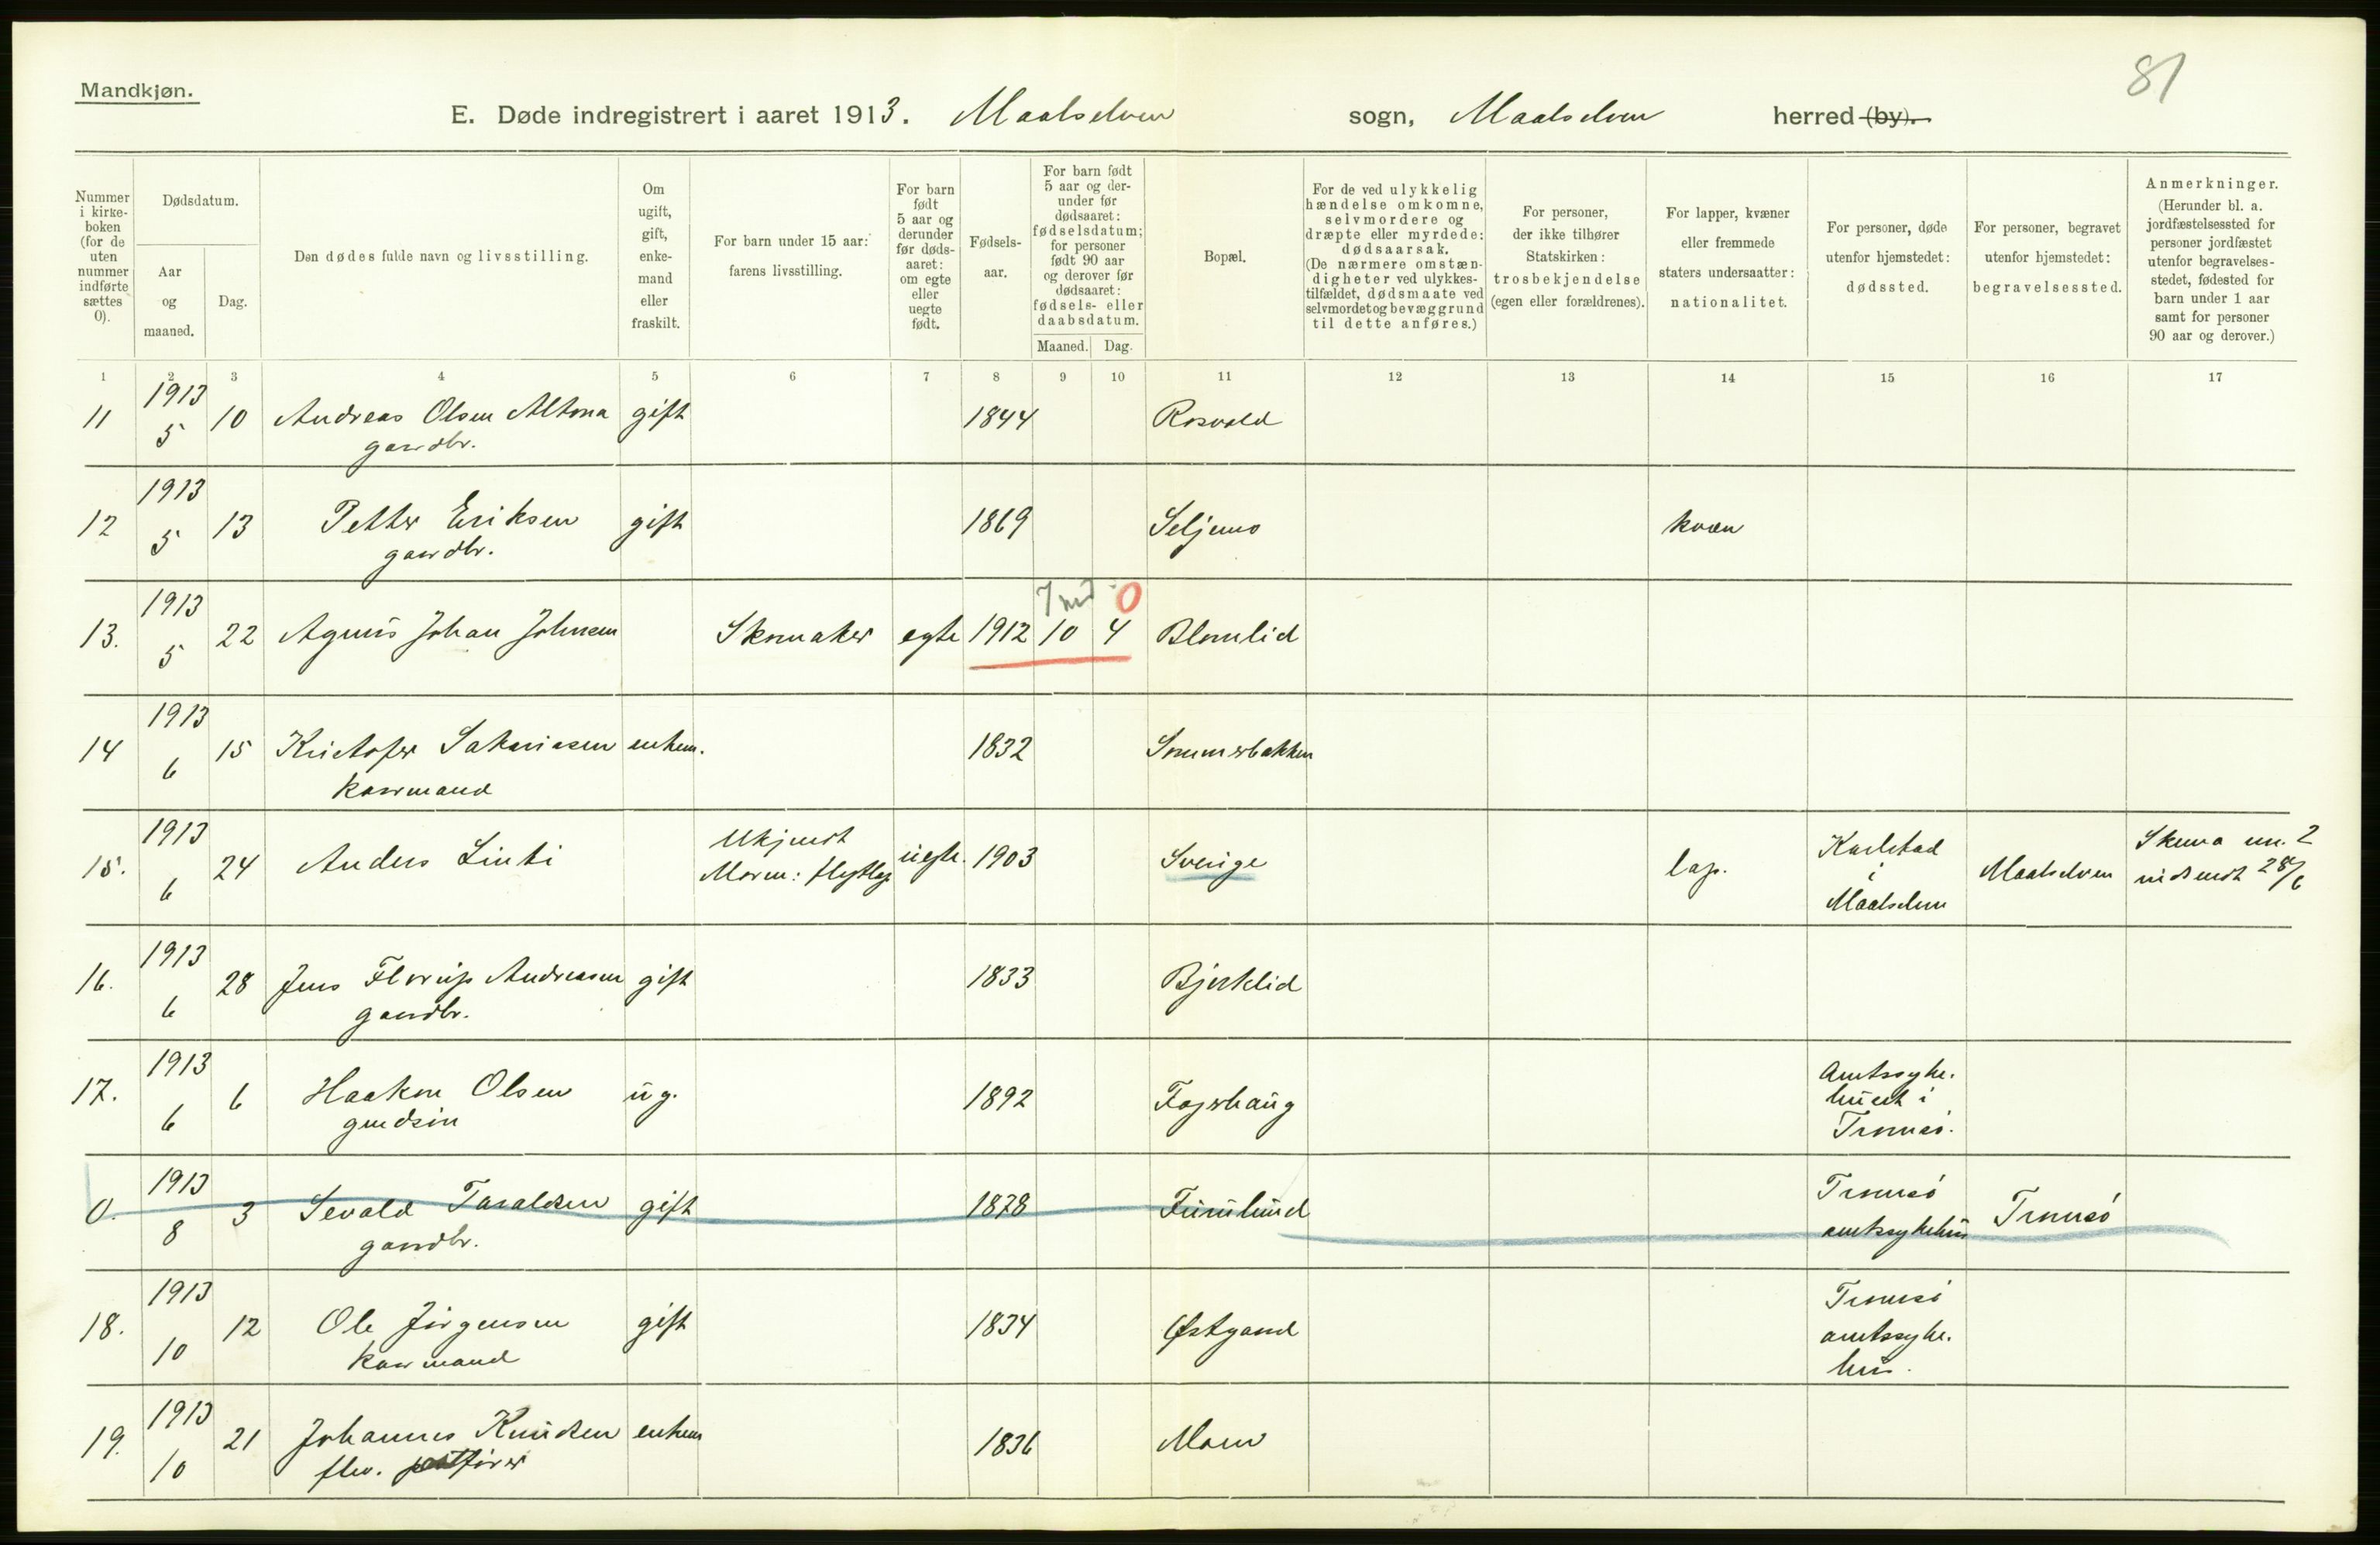 81
Mandkjøn.
E. Døde indregistrert i aaret 1913. Maalselven sogn, Maalselven herred (by).
Nummer i kirkeboken (for de uten nummer indførte sættes 0).
Dødsdatum.
Aar og maaned.
Dag.
Den dødes fulde navn og livsstilling.
Om ugift, gift, enkemand eller fraskilt.
For barn under 15 aar: farens livsstilling.
For barn født 5 aar og derunder før dødsaaret: om egte eller uegte født.
Fødselsaar.
For barn født 5 aar og derunder før dødsaaret: fødselsdatum; for personer født 90 aar og derover før dødsaaret: fødsels- eller daabsdatum.
Maaned. Dag.
Bopæl.
For de ved ulykkelig hændelse omkomne, selvmordere og dræpte eller myrdede: dødsaarsak. (De nærmere omstændigheter ved ulykkestilfældet, dødsmaate ved selvmordet og bevæggrund til dette anføres.)
For personer, der ikke tilhører Statskirken: trosbekjendelse (egen eller forældrenes).
For lapper, kvæner eller fremmede staters undersaatter: nationalitet.
For personer, døde utenfor hjemstedet: dødssted.
For personer, begravet utenfor hjemstedet: begravelsessted.
Anmerkninger. (Herunder bl. a. jordfæstelsessted for personer jordfæstet utenfor begravelsesstedet, fødested for barn under 1 aar samt for personer 90 aar og derover.)
1 2 3 4 5 6 7 8 9 10 11 12 13 14 15 16 17
11 1913 5 10 Andreas Olsen Altona gift 1844 Rosvold
gaardbr.
12 1913 5 13 Petter Eriksen gift 1869 Seljemo kvæn
gaardbr.
7 md 0
13. 1913 5 22 Johan Johnsen Skomaker egte 1912 10 4 Blomlid
14 1913 6 15 Kristofer Sakariasen enkem. 1832 Sommerbakken
kaarmand
15. 1913 6 24 Anders Ukjendt uegte. 1903 Sverige lap. Karlstad i Maalselven Maalselven Skema nr. 2
Moren: indsendt 28/6
16. 1913 6 28 Jens Andreasen gift 1833 Bjerklid
gaardbr.
17. 1913 6 6 Haakon Olsen ug. 1892 Fagerhaug Amtssykehuset i Tromsø.
0. 1913 8 3 Sevald Taraldsen gift 1878 Furulund Tromsø amtssykehus Tromsø
gaardbr.
18. 1913 10 12 Ole Jørgensen gift 1834 Østgaard Tromsø amtssykehus.
kaarmand
19. 1913 10 21 Johannes Knudsen enkem 1836 Moen
postfører